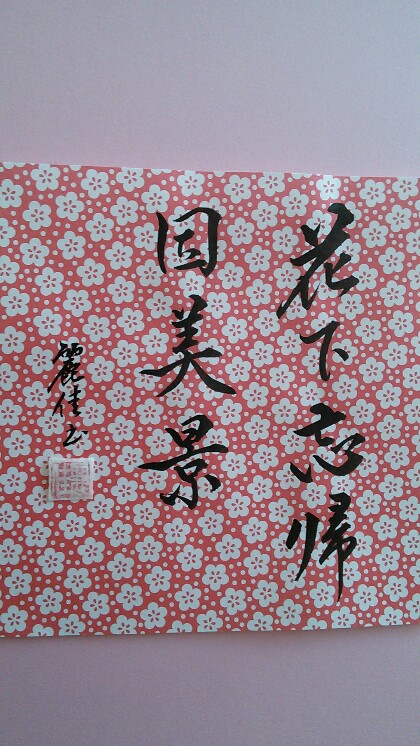 花下忘帰
因美景
麗佳书